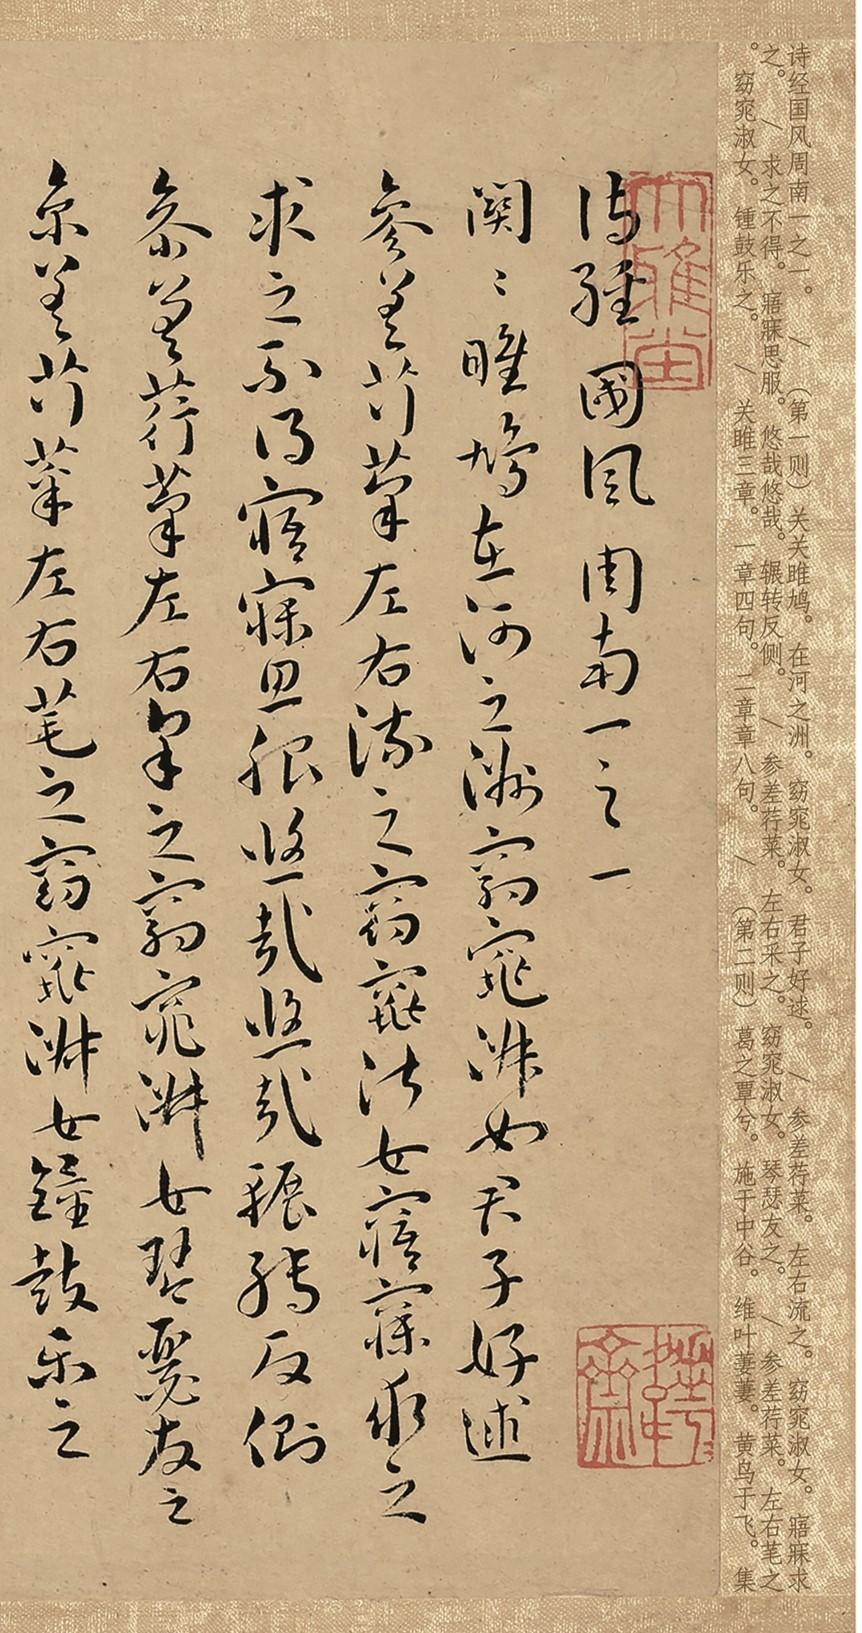 诗经国风周南一之一。 / （第一则）关关雎鸠。在河之洲。窈窕淑女。君子好逑。 / 参差荇菜。左右流之。窈窕淑女。寤寐求
之。 / 求之不得。寤寐思服。悠哉悠哉。辗转反侧。 / 参差荇菜。左右采之。窈窕淑女。琴瑟友之。 / 参差荇菜。左右芼之
。窈窕淑女。锺鼓乐之。 / 关雎三章。一章四句。二章章八句。 / （第二则）葛之覃兮。施于中谷。维叶萋萋。黄鸟于飞。集
大雅堂
詩經國風周南一之一
關〻雎鳩在河之洲窈窕淑女君子好逑
參差荇菜左右流之窈窕淑女寤寐求之
求之不得寤寐思服悠哉悠哉輾轉反側
參差荇菜左右采之窈窕淑女琴瑟友之
參差荇菜左右芼之窈窕淑女鐘鼓樂之